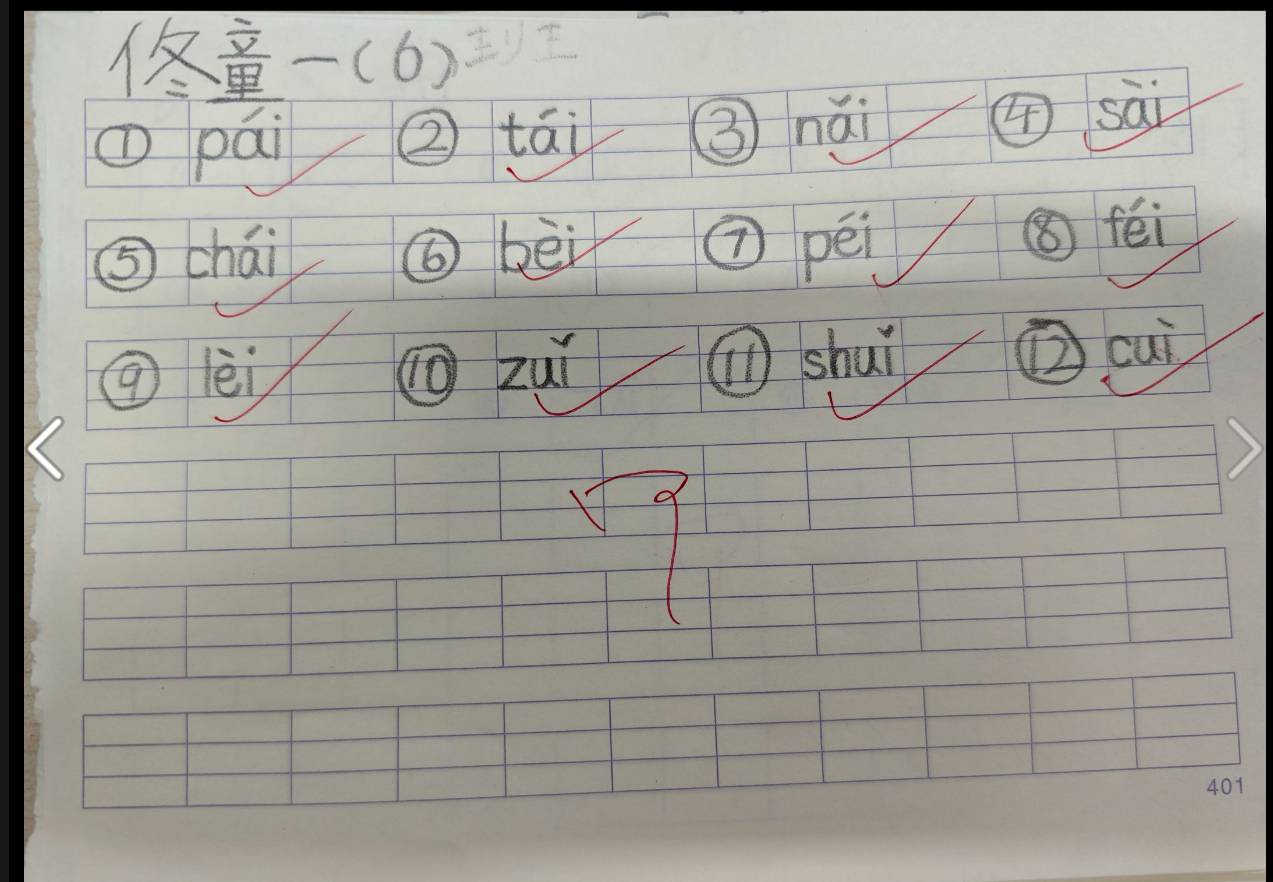 佟童一(6)班
① pái ② tái ③ nǎi ④ sài
⑤ chái ⑥ bèi ⑦ péi ⑧ féi
⑨ lèi ⑩ zuǐ ⑪ shuǐ ⑫ cuì
401